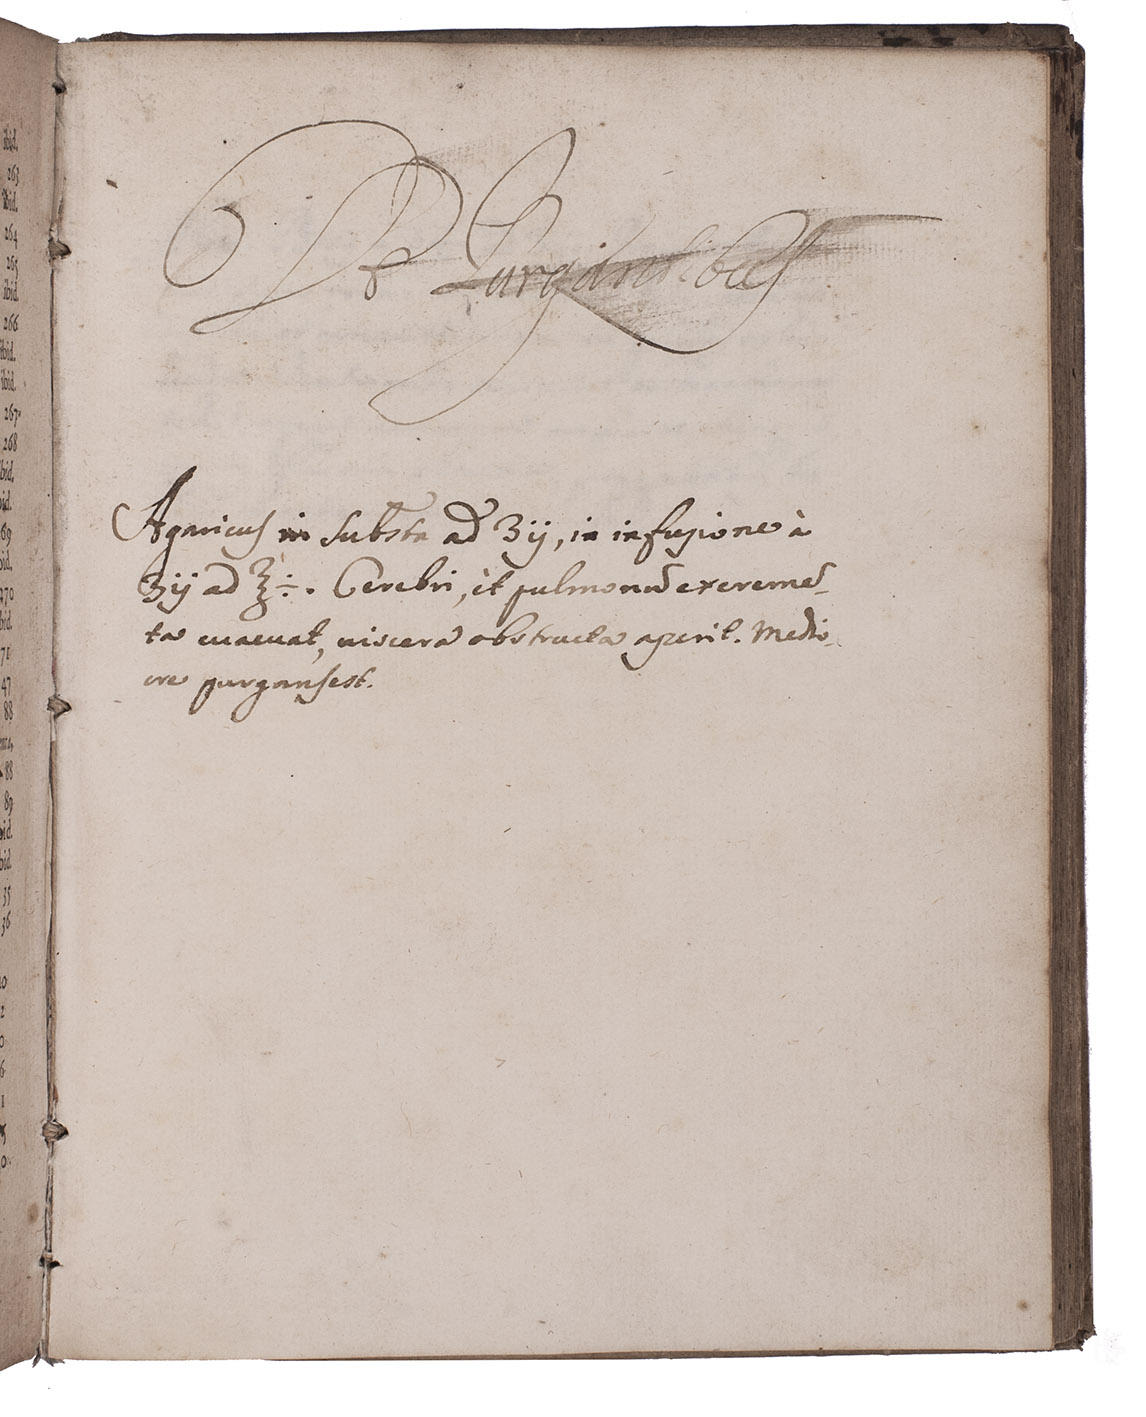 ibid.
263
ibid.
264
265
ibid.
266
ibid.
ibid.
267
268
ibid.
ibid.
69
bid.
470
bid.
71
47
88
88
89
bid.
bid.
35
36
De Purgantibus
Agaricus in Substā ad ʒij, in infusione à
ʒij ad ℥÷. Cerebri, et pulmonū excremē-
ta euacuat, uiscera obstructa aperit. Medio-
cre purgans est.